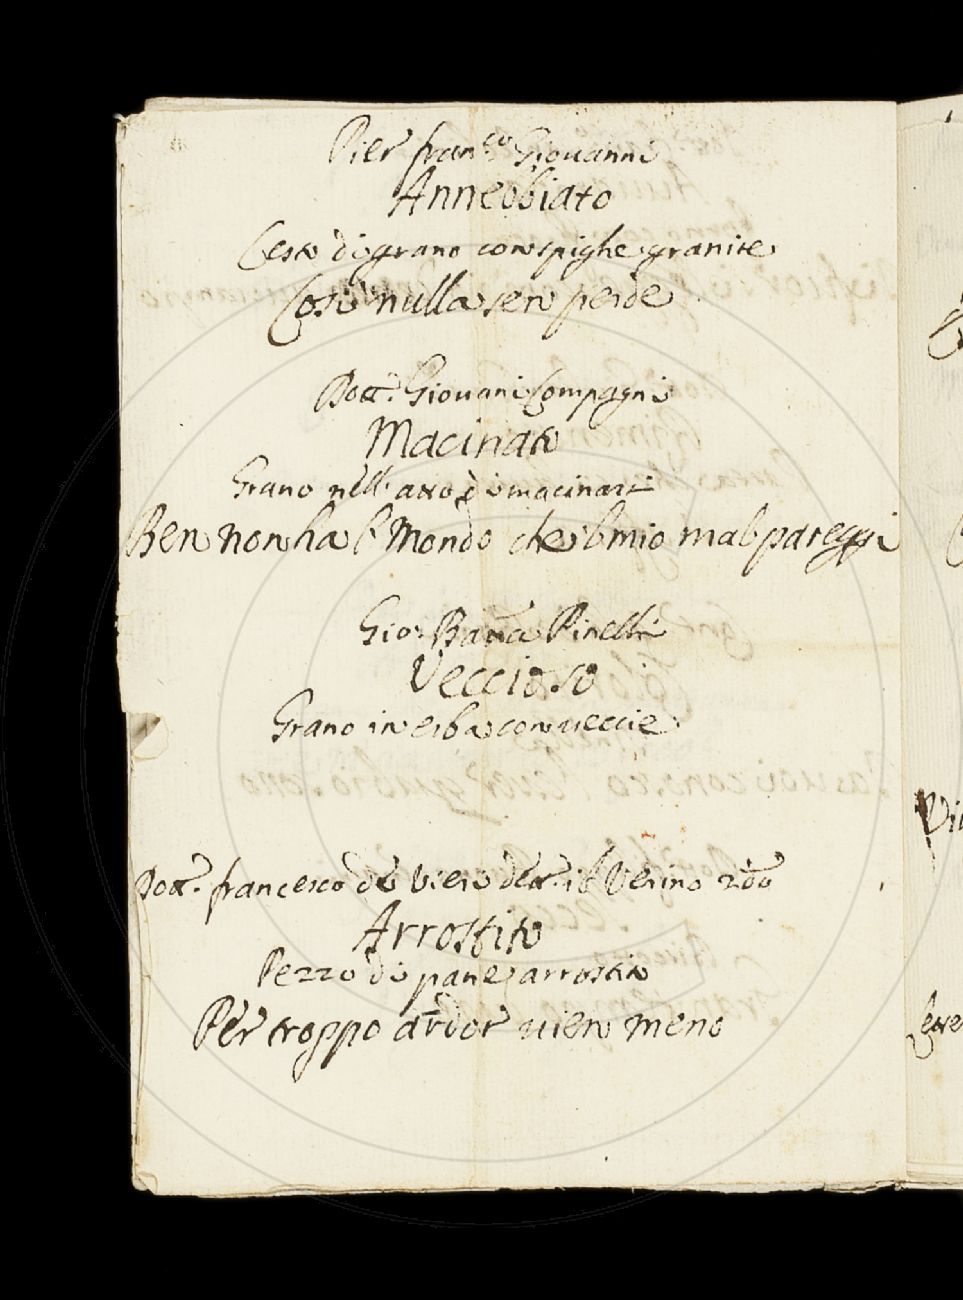 Pier fran.co Giouanni
Annebbiato
Cesto di grano con spighe granite
Così nulla sen perde
Dott.e Giouani Compagni
Macinato
Grano nell' atto di macinarsi
Ben non ha 'l Mondo che il mio mal pareggi
Gio: Batta Pinelli
Veccioso
Grano in erba con ueccie
Dott.e francesco de Vieri dett. il Verino 2do
Arrostito
Pezzo di pane arrostito
Per troppo ardor uien meno